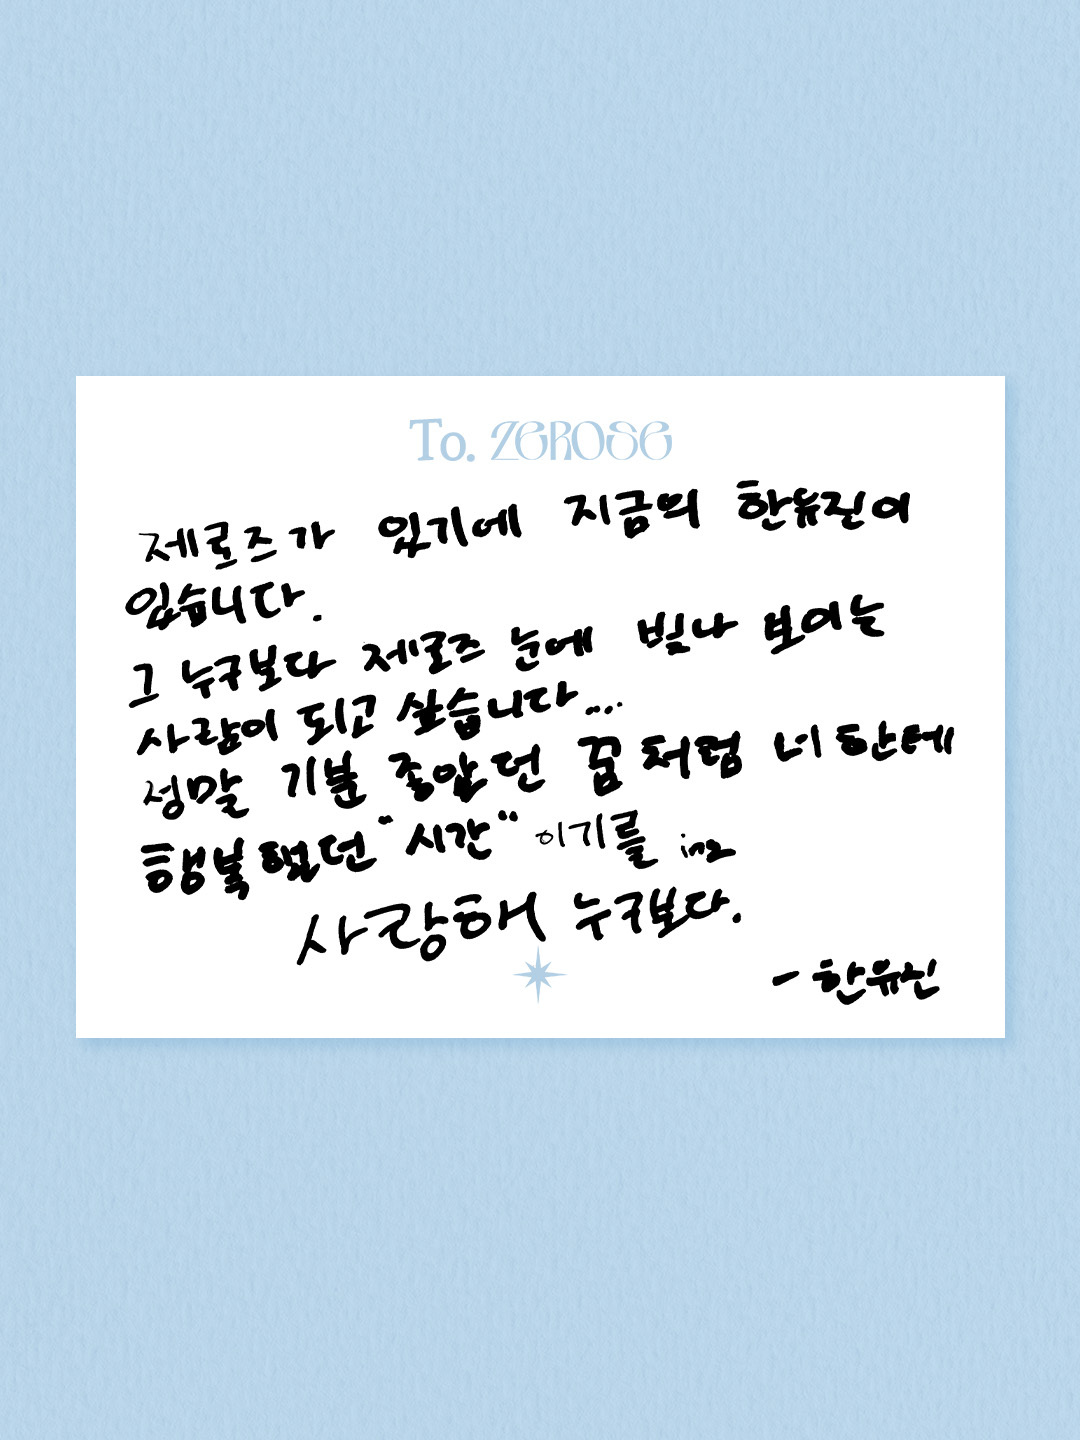 To. ZEROSE
제로즈가 있기에 지금의 한유진이
있습니다.
그 누구보다 제로즈 눈에 빛나 보이는
사람이 되고 싶습니다...
정말 기분 좋았던 꿈처럼 너한테
행복했던 "시간" 이기를 ing
사랑해 누구보다.
- 한유진